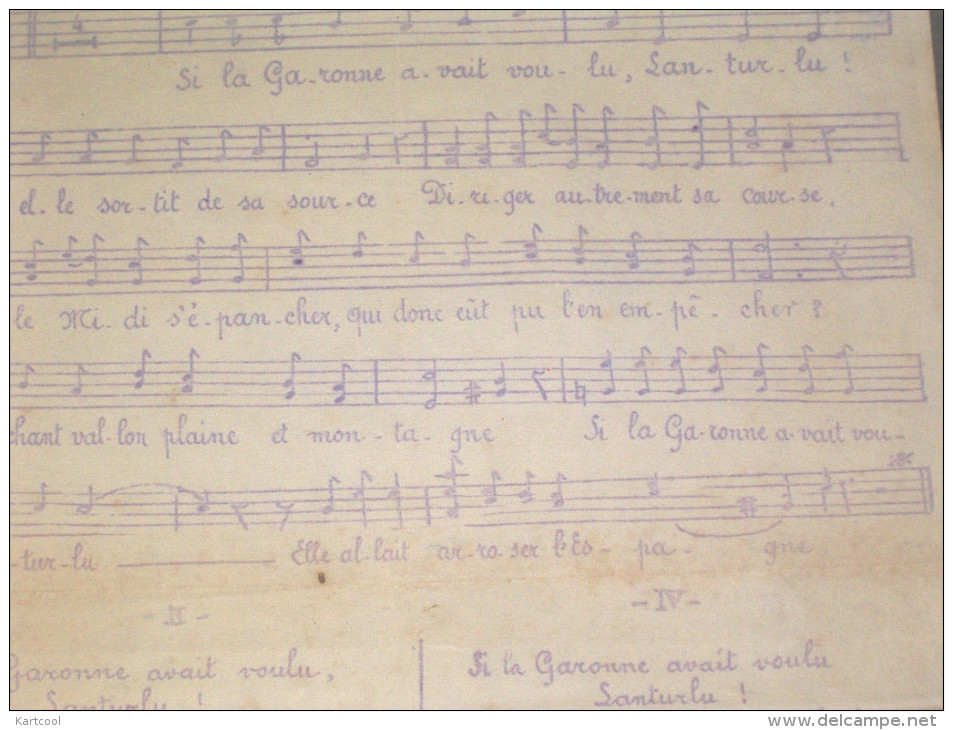 Si la Ga-ronne a-vait vou-lu, Lan-tur-lu !
el-le sor-tit de sa sour-ce Di-ri-ger au-tre-ment sa cour-se.
le Mi-di s'é-pan-cher, qui donc eût pu l'en em-pê-cher ?
chant val-lon plaine et mon-ta-gne Si la Ga-ronne a-vait vou-
-tur-lu Elle al-lait ar-ro-ser l'Es-pa-gne
- II -
- IV -
Garonne avait voulu,
Lanturlu !
Si la Garonne avait voulu
Lanturlu !
Kartcool
delcampe.net